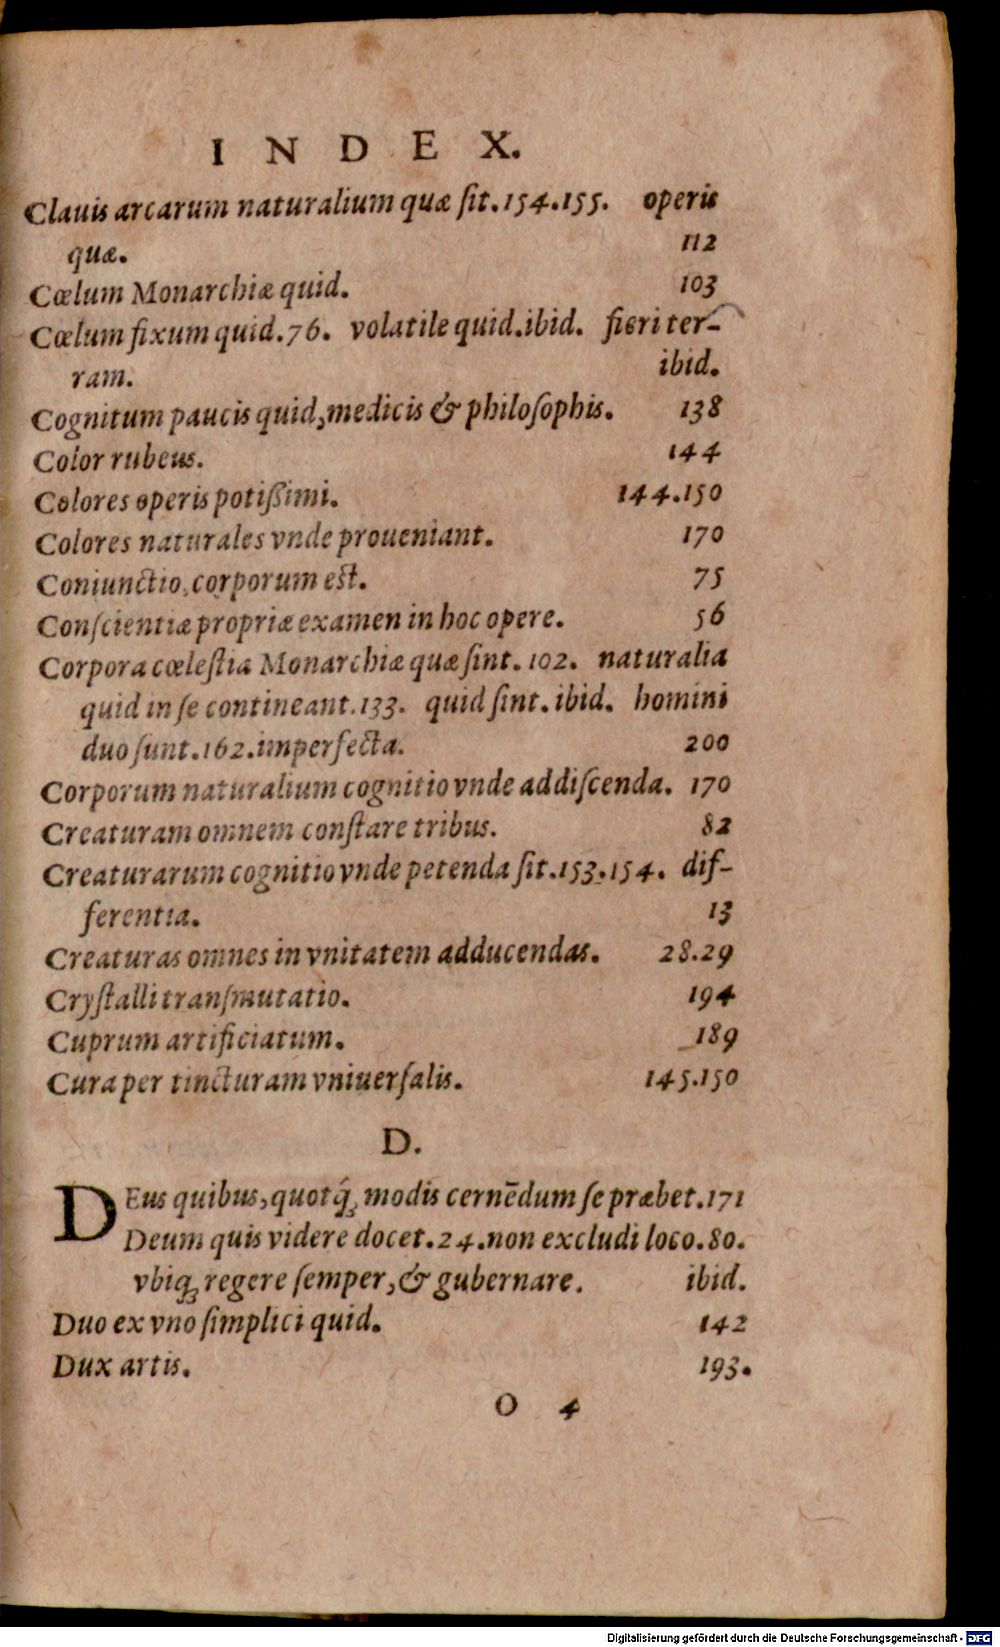 INDEX.
Clauis arcarum naturalium quæ ſit. 154. 155. operis
quæ. 112
Cœlum Monarchiæ quid. 103
Cœlum fixum quid. 76. volatile quid. ibid. fieri ter-
ram. ibid.
Cognitum paucis quid, medicis & philoſophis. 138
Color rubeus. 144
Colores operis potißimi. 144. 150
Colores naturales vnde proueniant. 170
Coniunctio, corporum est. 75
Conſcientiæ propriæ examen in hoc opere. 56
Corpora cœleſtia Monarchiæ quæ ſint. 102. naturalia
quid in ſe contineant. 133. quid ſint. ibid. homini
duo ſunt. 162. imperfecta. 200
Corporum naturalium cognitio vnde addiſcenda. 170
Creaturam omnem conſtare tribus. 82
Creaturarum cognitio vnde petenda ſit. 153. 154. dif-
ferentia. 13
Creaturas omnes in vnitatem adducendas. 28. 29
Cryſtalli tranſmutatio. 194
Cuprum artificiatum. 189
Cura per tincturam vniuerſalis. 145. 150
D.
DEus quibus, quotq́ꝫ modis cernēdum ſe præbet. 171
Deum quis videre docet. 24. non excludi loco. 80.
vbiqꝫ regere ſemper, & gubernare. ibid.
Duo ex vno ſimplici quid. 142
Dux artis. 193.
O 4
Digitalisierung gefördert durch die Deutsche Forschungsgemeinschaft - DFG